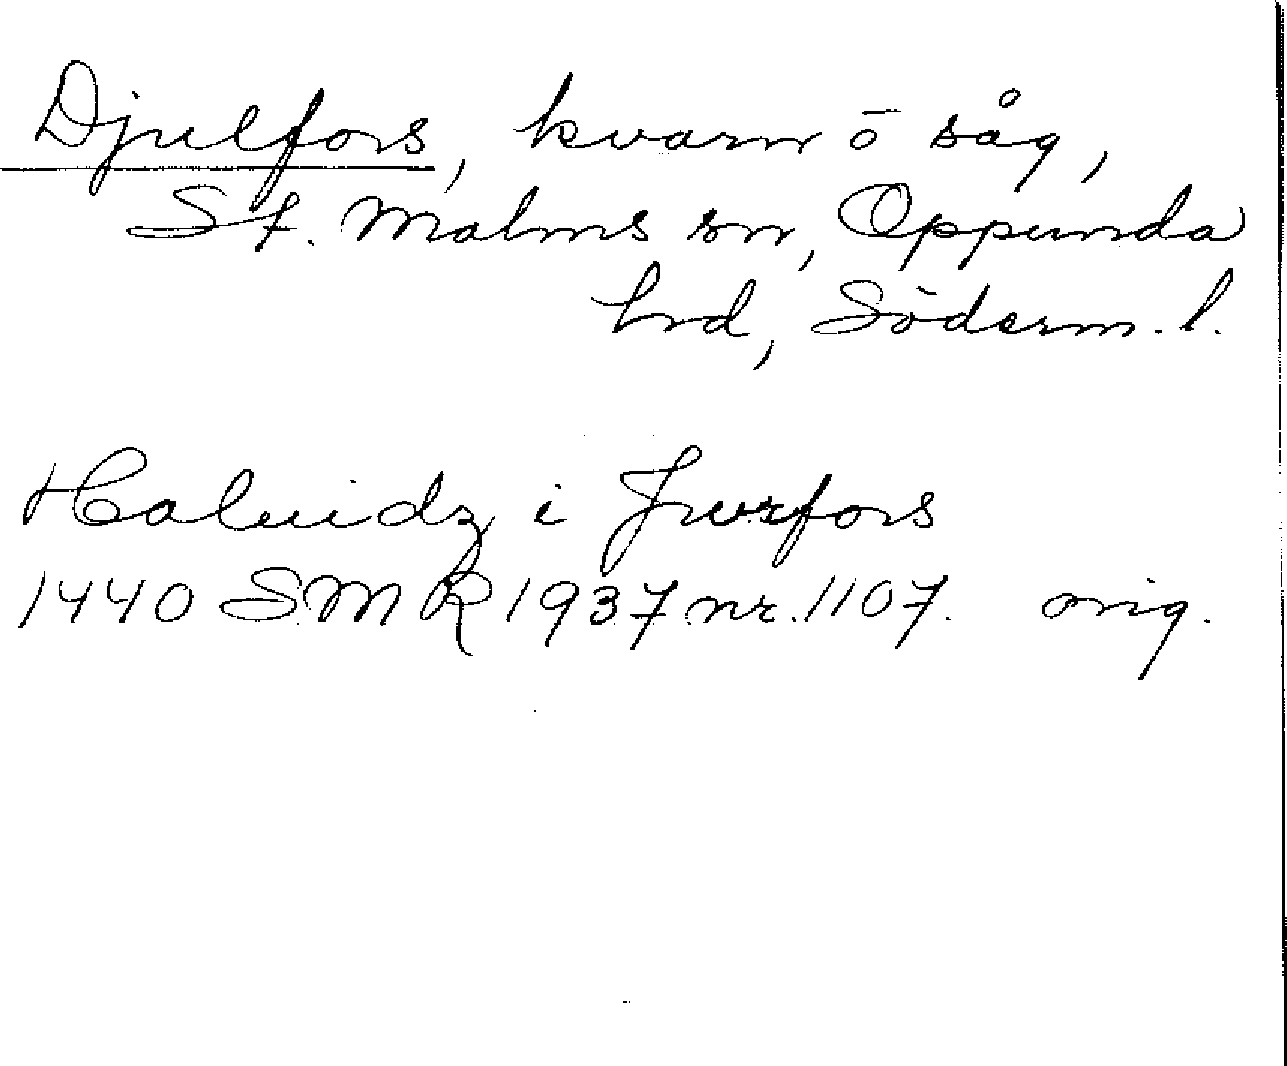 Djulfors, kvarn o såg,
St. Malms sn, Oppunda
hd, Söderm. l.
Haluidz i Jwrfors
1440 SMR 1937 nr. 1107. orig.